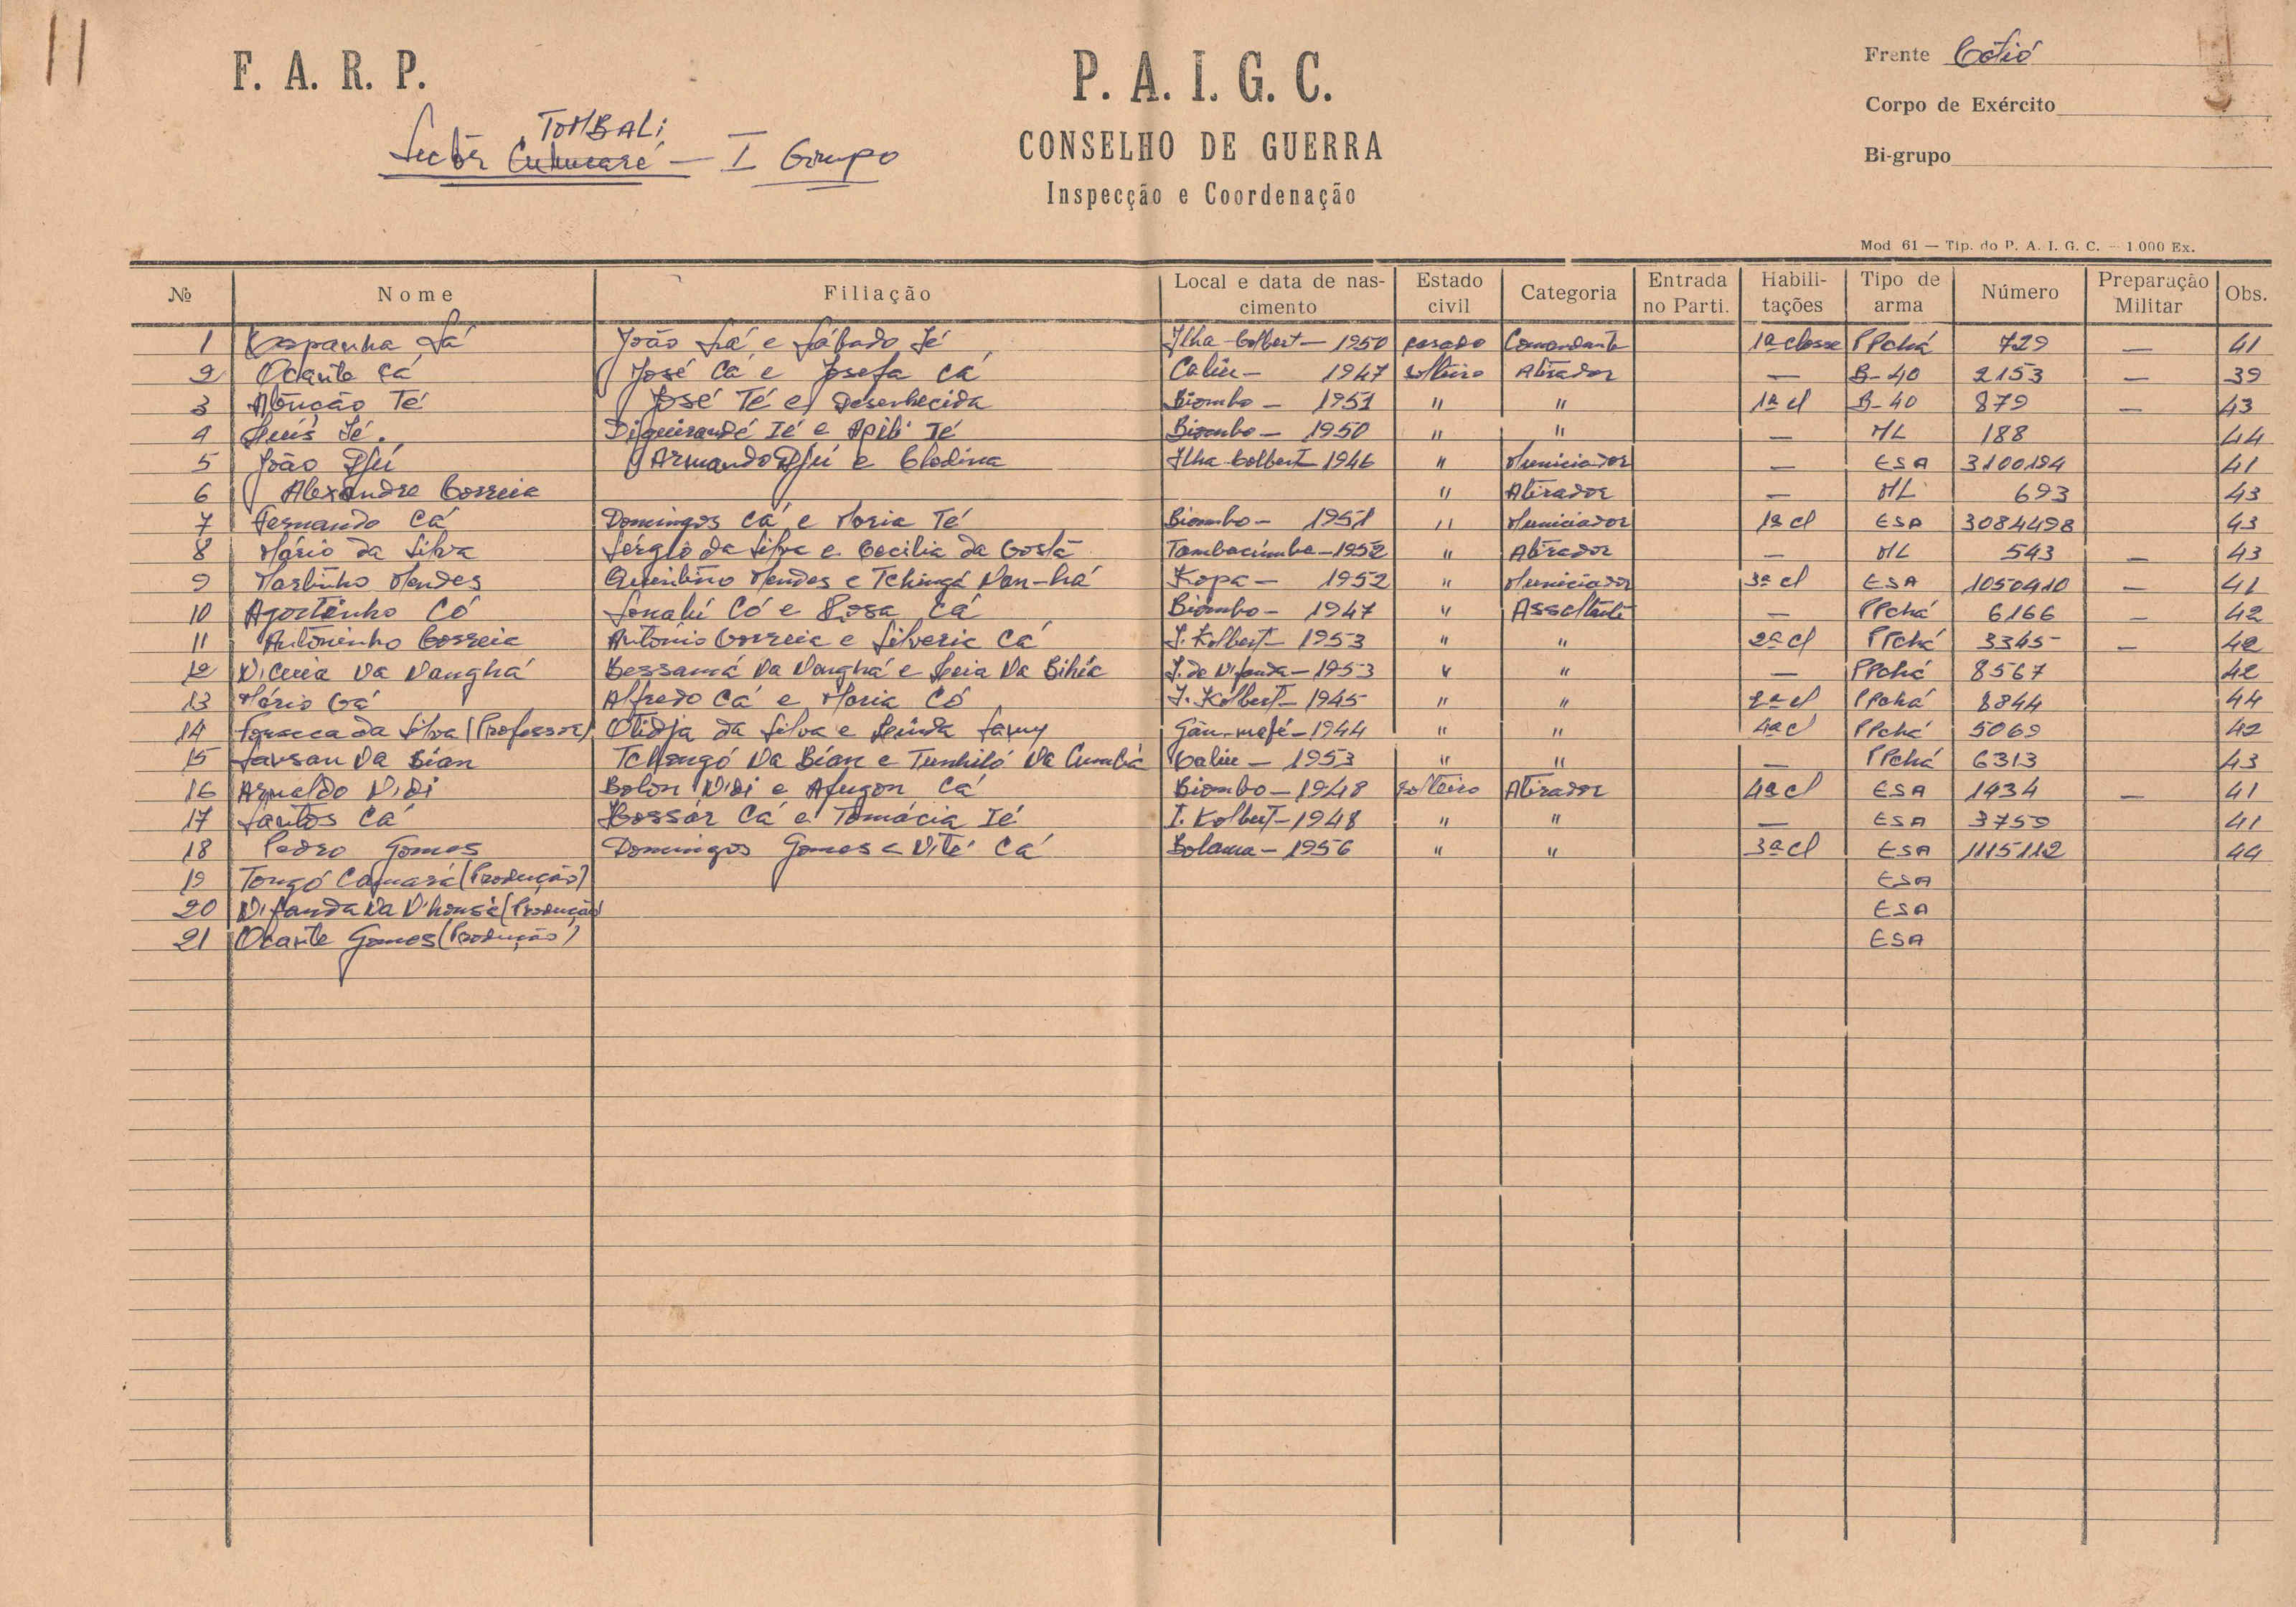 11
F. A. R. P.
P. A. I. G. C.
Frente Cotió
TOMBALI
Sectôr Cuhucaré — I Grupo
CONSELHO DE GUERRA
Corpo de Exército
Inspecção e Coordenação
Bi-grupo
Mod 61 — Tip. do P. A. I. G. C. — 1.000 Ex.
№ Nome Filiação Local e data de nas-cimento Estado civil Categoria Entrada no Parti. Habili-tações Tipo de arma Número Preparação Militar Obs.
1 Espanha Sá João Sá e Sábado Té Ilha Colbert — 1950 casado Comandante 1ª classe PPchá 729 — 41
2 Ocante Cá José Cá e Josefa Cá Caliu — 1947 solteiro Atirador — B-40 2153 — 39
3 Atônção Té José Té e Desenhecida Biombo — 1951 " " 1ª cl B-40 879 — 43
4 Luís Té. Diguirandé Ié e Apili Té Biombo — 1950 " " — ML 188 44
5 João Djú Armando Djú e Clodina Ilha Colbert — 1946 " Municiador — ESA 3100194 41
6 Alexandre Correia " Atirador — ML 693 43
7 Fernando Cá Domingos Cá e Maria Té Biombo — 1951 " Municiador 1ª cl ESA 3084498 43
8 Mário da Silva Sérgio da Silva e Cecilia da Costa Tambacumba — 1952 " Atirador — ML 543 — 43
9 Martinho Mendes Quintino Mendes e Tchingá Nan-há Kopa — 1952 " Municiador 3ª cl ESA 1050410 — 41
10 Agostinho Có Sonahí Có e Rosa Cá Biombo — 1947 " Assaltante — PPchá 6166 — 42
11 Antóninho Correia António Correia e Silveria Cá I. Kolbert — 1953 " " 2ª cl PPchá 3345 — 42
12 Na Nanghá Bessamá Na Nanghá e Na Bihéa I. de N'fanda — 1953 " " — PPchá 8567 42
13 Mário Cá Alfredo Cá e Maria Có I. Kolbert — 1945 " " 2ª cl PPchá 8844 44
14 Fonseca da Silva (Professor) Olidja da Silva e Gân-mafé — 1944 " " 4ª cl PPchá 5069 42
15 Sansau Na Bian Tchongó Na Bian e Tunhiló Na Cumbá Caliu — 1953 " " — PPchá 6313 43
16 Arnaldo N'Di Bolon N'Di e Afugon Cá Biombo — 1948 solteiro Atirador 4ª cl ESA 1434 — 41
17 Santos Cá Bossár Cá e Tomácia Ié I. Kolbert — 1948 " " — ESA 3759 41
18 Pedro Gomes Domingos Gomes e N'té Cá Bolama — 1956 " " 3ª cl ESA 1115112 44
19 Tongó Camará (Produção) ESA
20 N'fanda Na N'honsé (Produção) ESA
21 Ocante Gomes (Produção) ESA